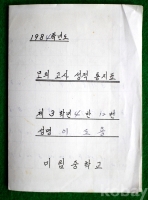 1984학년도
모의 고사 성적 통지표
제 3 학년 4 반 10 번
성명 이 도 중
미림중학교
kobay